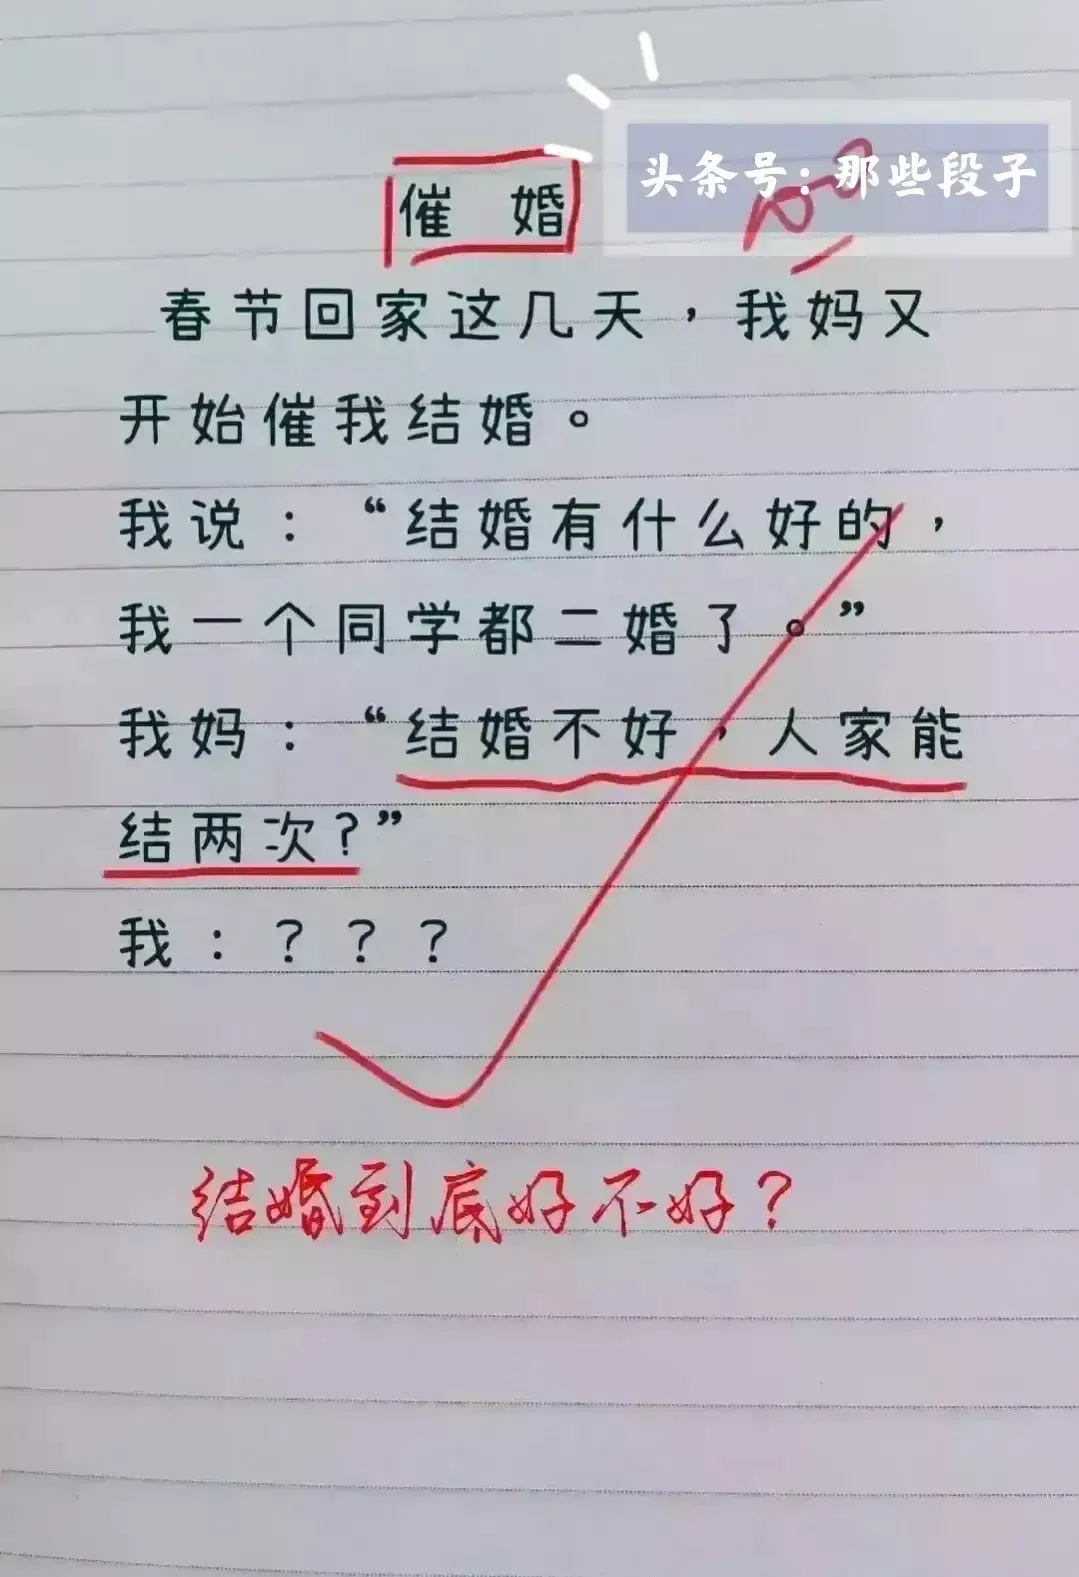 头条号:那些段子
100
催 婚
春节回家这几天，我妈又
开始催我结婚。
我说：“结婚有什么好的，
我一个同学都二婚了。”
我妈：“结婚不好，人家能
结两次?”
我：？？？
结婚到底好不好？